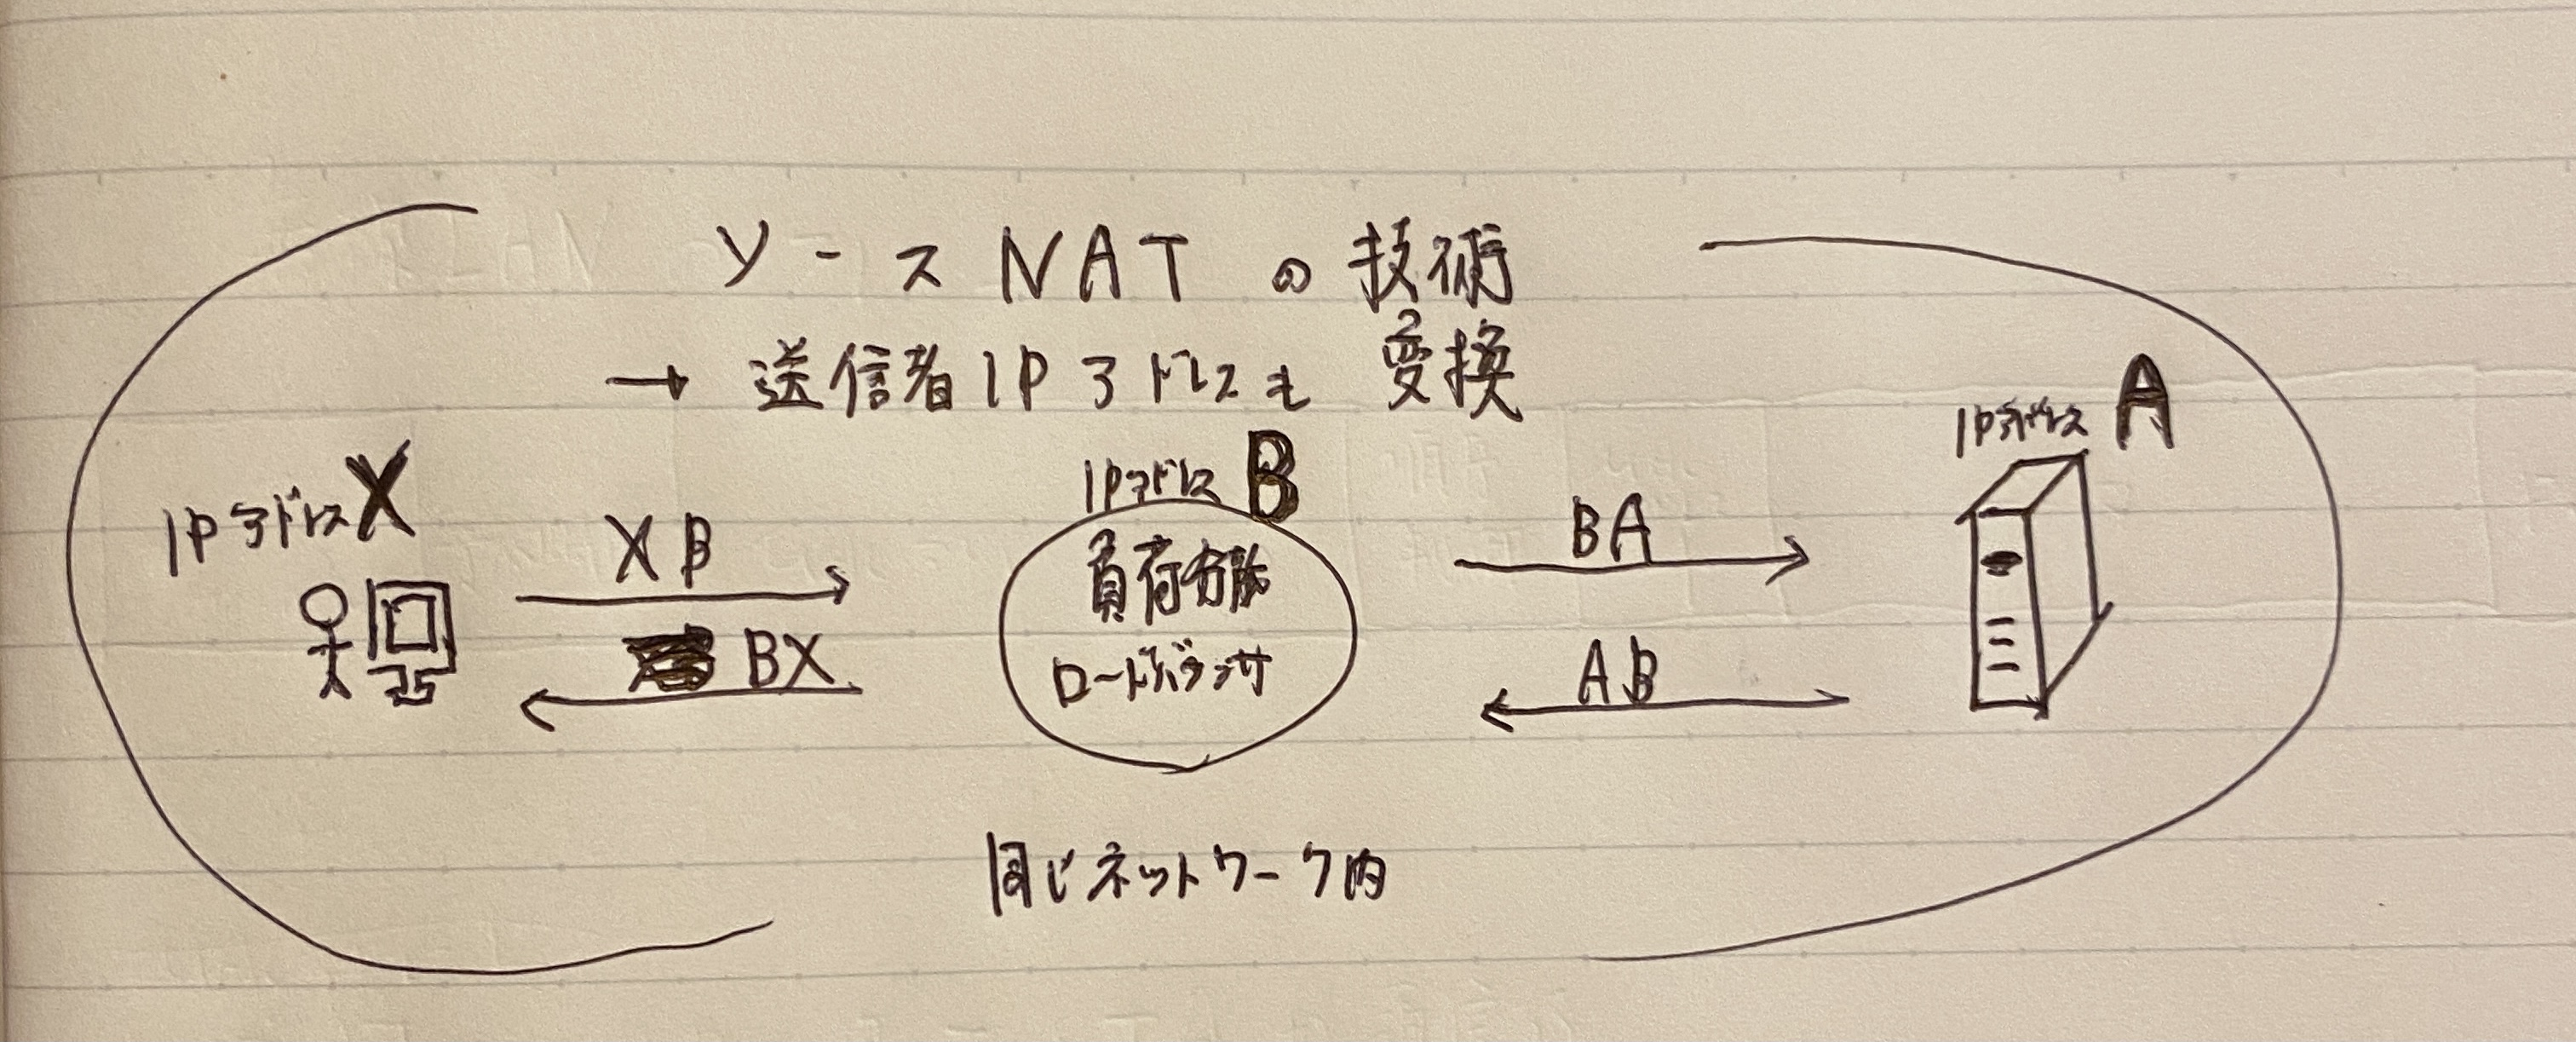 ソースNATの技術
→ 送信者IPアドレスも変換
IPアドレスA
IPアドレスB
IPアドレスX
XB
BX
負荷分散
ロードバランサ
BA
AB
同じネットワーク内